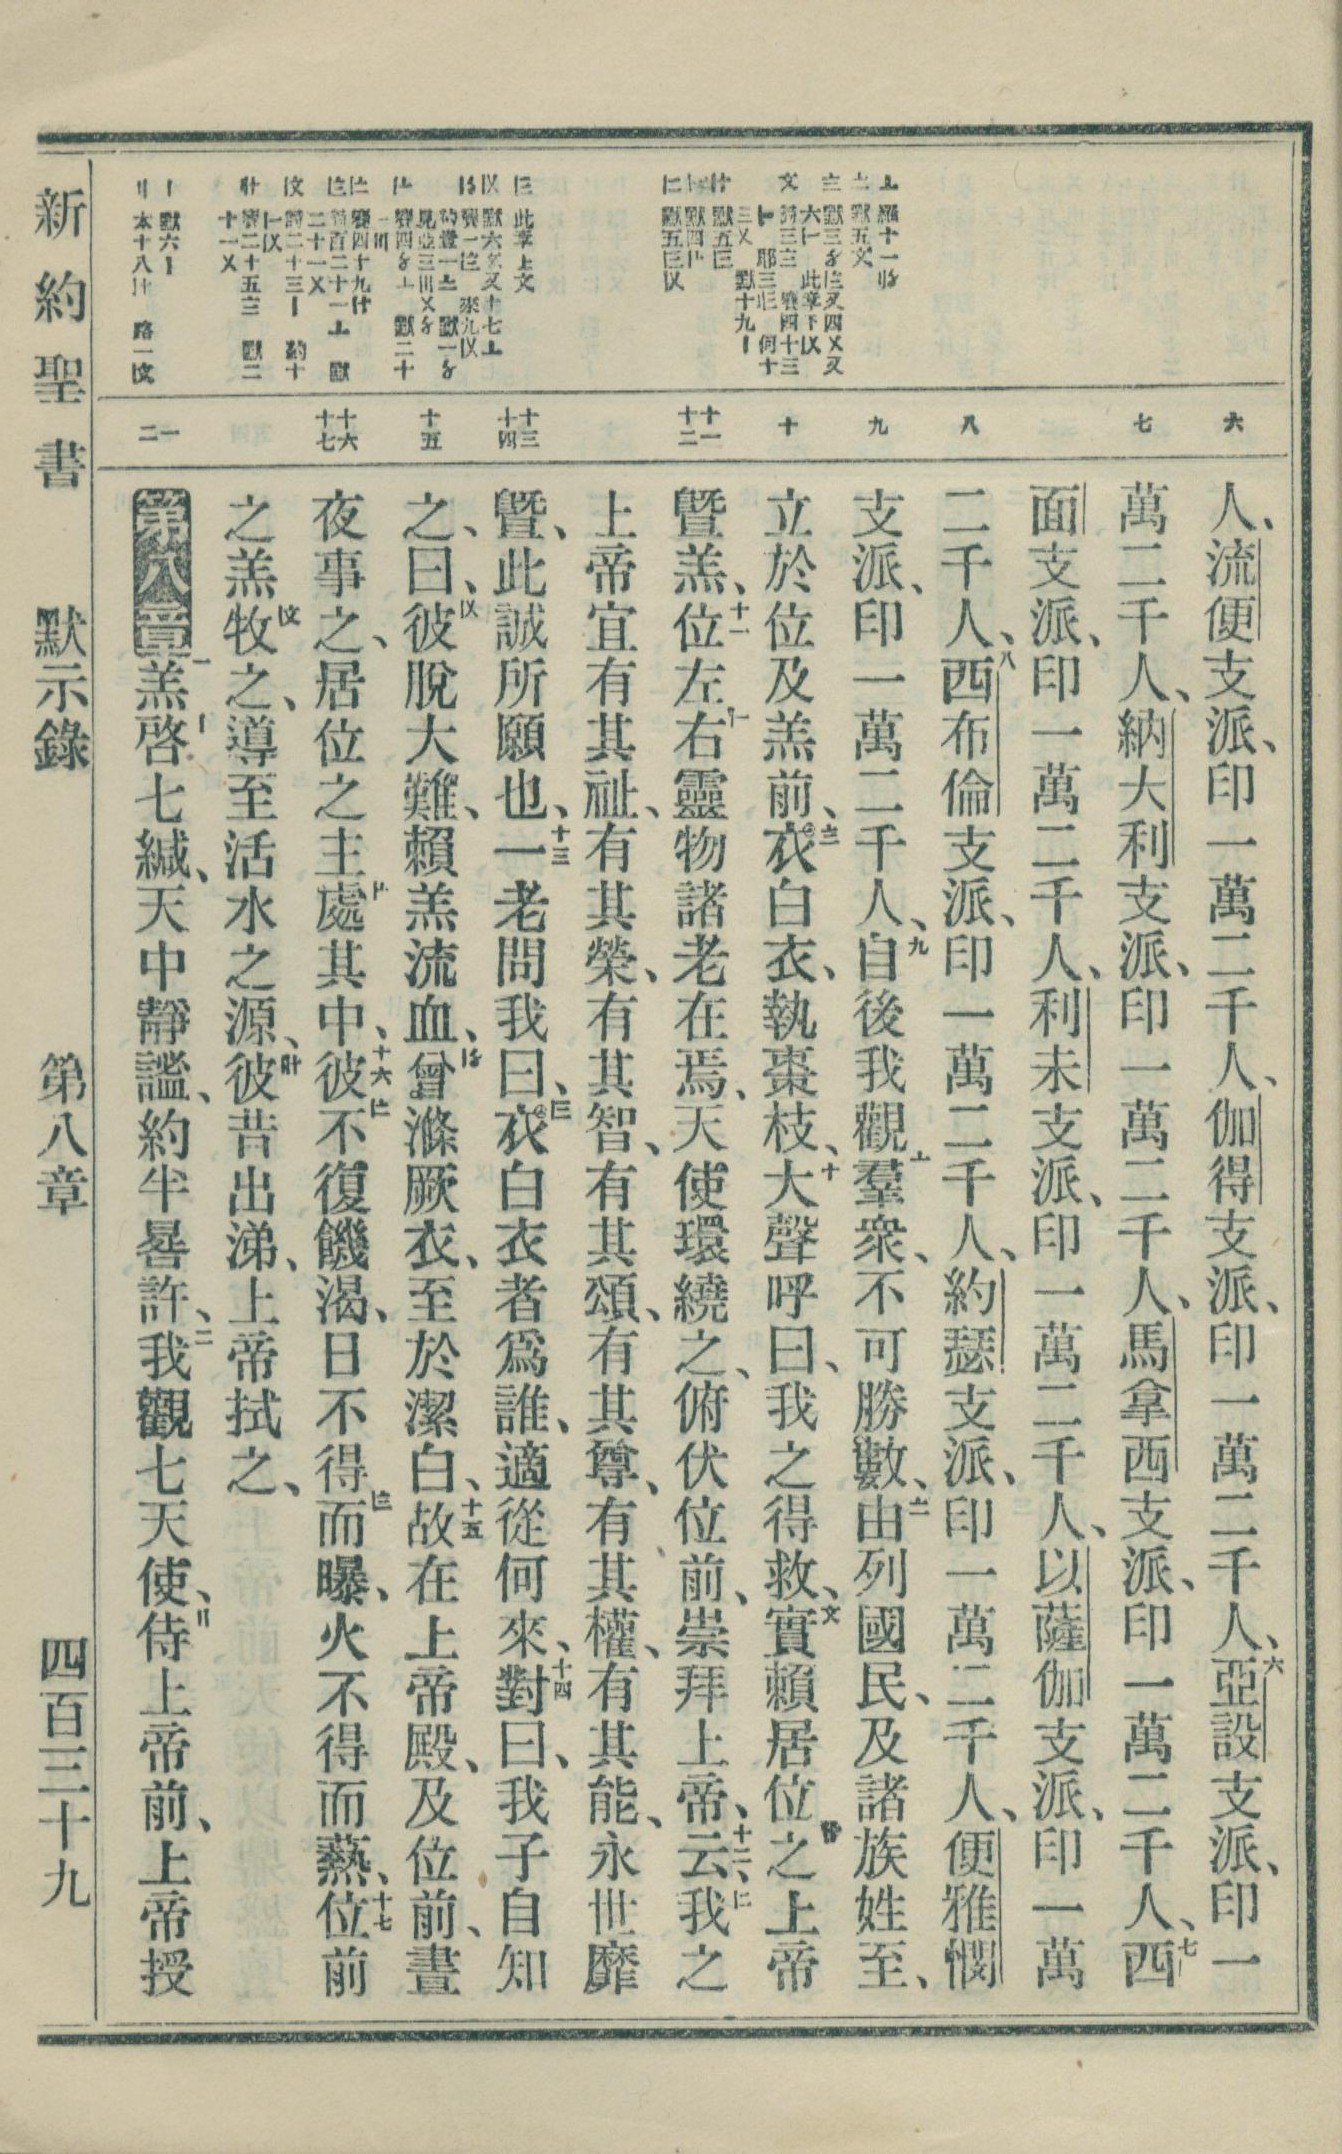 人、流便支派、印一萬二千人、伽得支派、印一萬二千人、六亞設支派、印一
萬二千人、納大利支派、印一萬二千人、馬拿西支派、印一萬二千人、七西
面支派、印一萬二千人、利未支派、印一萬二千人、以薩伽支派、印一萬
二千人、八西布倫支派、印一萬二千人、約瑟支派、印一萬二千人、便雅憫
支派、印一萬二千人、九自後我觀羣衆、不可勝數、由列國民、及諸族姓至、
立於位及羔前、衣白衣、執棗枝、十大聲呼曰、我之得救、實賴居位之上帝
曁羔、十一位左右靈物諸老在焉、天使環繞之、俯伏位前、崇拜上帝、十二云、我之
上帝宜有其祉、有其榮、有其智、有其頌、有其尊、有其權、有其能、永世靡
曁、此誠所願也、十三一老問我曰、衣白衣者爲誰、適從何來、十四對曰、我子自知
之、曰、彼脫大難、賴羔流血、曾滌厥衣、至於潔白、十五故在上帝殿、及位前、晝
夜事之、居位之主處其中、十六彼不復饑渴、日不得而曝、火不得而爇、十七位前
之羔牧之、導至活水之源、彼昔出涕、上帝拭之、
第八章 一羔啓七緘、天中靜謐、約半晷許、二我觀七天使、侍上帝前、上帝授
六
七
八
九
十
十一
十二
十三
十四
十五
十六
十七
一
二
新約聖書 默示錄 第八章 四百三十九